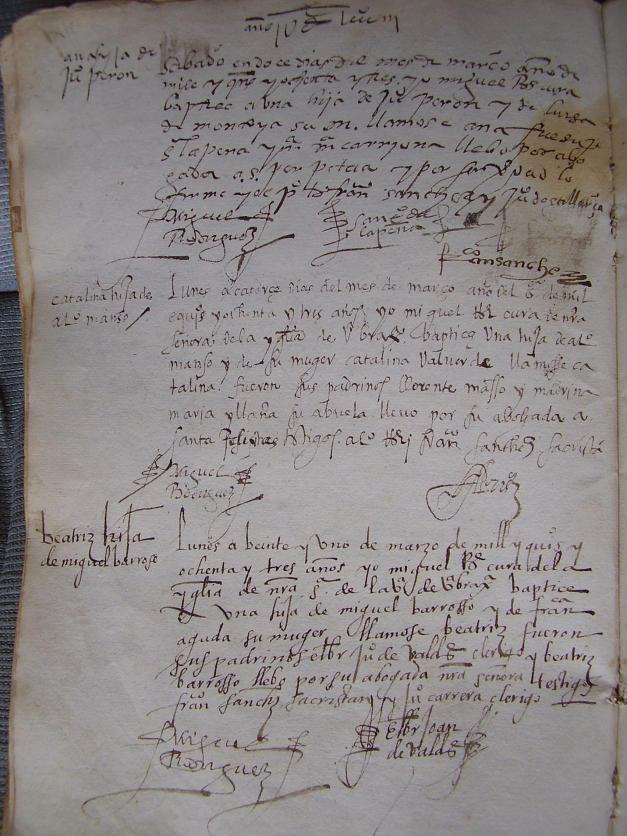 año
ana hija de
juº peron
sabado en doce dias del mes de março año de
mill y quisº y ochenta y tres. yo miguel Rs cura
baptice a una hija de juº peron y de luisa
de montoya su m. llamose ana fue su pº
lapena y mª carryona llebo por abo
gada a s. perpetua y por ser verdad lo
firme ts franº sanchez y juº de
Miguel
Rodriguez
lapeña
franº sanchez
catalina hija de
alº manso
Lunes a catorçe dias del mes de março año del sº de mil
e quisº y ochenta y tres años yo miguel Rs cura de nra
señora de la yglia de baptice una hija de alº
manso y de su muger catalina valverde llamose ca
talina fueron sus padrinos llorente masso y madrina
maria yllana su abuela llevo por su abogada a
santa felicitas tºigos. alº franº sanchez sacristá
Miguel
Rodriguez
beatriz hija
de miguel barroso
Lunes a beinte y uno de marzo de mill y quisº y
ochenta y tres años yo miguel Rs cura de la
yglia de nra sª de la baptice
a una hija de miguel barrosso y de franca
aguda su muger llamose beatriz fueron
sus padrinos el br juº de valdes clerigo y beatriz
barrosso llebo por su abogada nra señora testigos
franº sanchez sacristan y juº carrera clerigo
Miguel
Rodriguez
el br Joan
de valdes